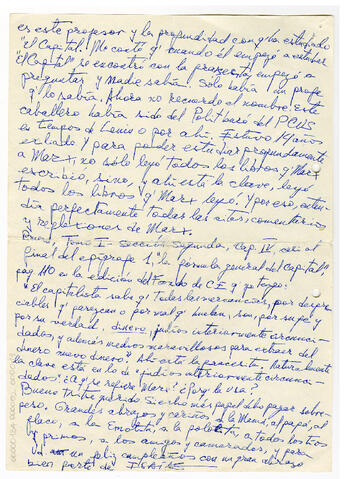 es este profesor y la profundidad con q' ha estudiado
"El Capital". Me contó q' cuando él empezó a estudiar
"El Capital" se encontró con la frasecita, empezó a
preguntar y nadie sabía. Sólo sabía 1 profe
q' lo sabía. Ahora no recuerdo el nombre. Este
caballero había sido del Politburó del PCUS
en tiempos de Lenin o por ahí. Estuvo 14 años
exilado y para poder estudiar profundamente
a Marx, no sólo leyó todos los libros q' Marx
escribió, sino, y ahí está la clave, leyó
todos los libros q' Marx leyó. Y por eso, enten-
día perfectamente todas las citas, comentarios
y reflexiones de Marx.
Bueno, Tomo I - Sección Segunda, Cap. IV, casi al
final del epígrafe 1, "la formula general del capital"
pág 110 en la edición del Fondo de C.E. q' yo tengo:
"El capitalista sabe q' todas las mercancías, por despre-
ciables q' parezcan o por mal q' huelan, son, por su fe y
por su verdad, dinero, judíos interiormente circunci-
dados, y además medios maravillosos para extraer del
dinero nuevo dinero." Ahí está la frasecita, naturalmente
la clave está en lo de "judíos interiormente circunci-
dados". ¿A q' se refiere Marx? ¿Por q' la usa?
Bueno tribu querida. Si echo más papel debo pagar sobre-
peso. Grandes abrazos y cariños a la Memé, al papá, al
flaco, a la Emotita, a la pelotita, a todos los tíos
y primos, a los amigos y camaradas, y para
un feliz cumpleaños con un gran abrazo
bien fuerte de